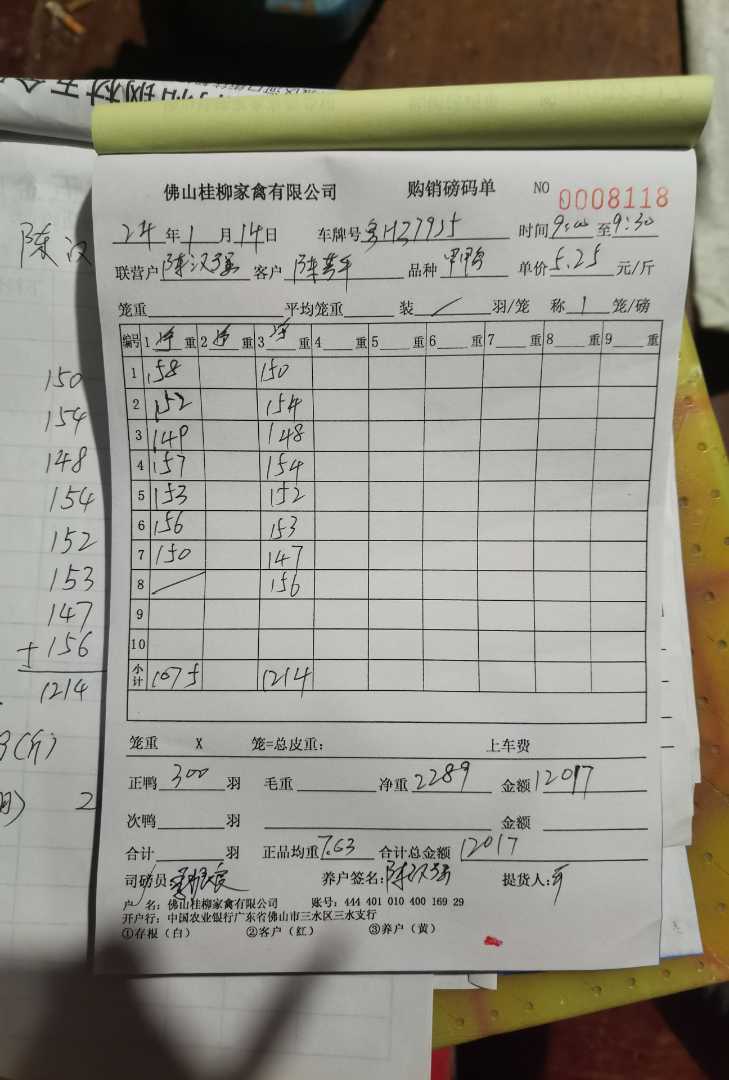 佛山桂柳家禽有限公司 购销磅码单 NO 0008118
24年1月14日 车牌号 粤H37955 时间9:00至9:30
联营户 陈汉强 客户 品种 单价5.25元/斤
笼重 平均笼重 装 / 羽/笼 称 1 笼/磅
编号 1 净 重 2 净 重 3 净 重 4 重 5 重 6 重 7 重 8 重 9 重
1 158 150
2 152 154
3 149 148
4 157 154
5 153 152
6 156 153
7 150 147
8 / 156
9
10
小计 1075 1214
笼重 X 笼=总皮重: 上车费
正鸭 300 羽 毛重 净重 2289 金额 12017
次鸭 羽 金额
合计 羽 正品均重 7.63 合计总金额 12017
司磅员: 养户签名: 陈汉强 提货人:
户 名: 佛山桂柳家禽有限公司 账号: 444 401 010 400 169 29
开户行: 中国农业银行广东省佛山市三水区三水支行
①存根（白） ②客户（红） ③养户（黄）
陈汉
150
154
148
154
152
153
147
+156
1214
(斤)
2